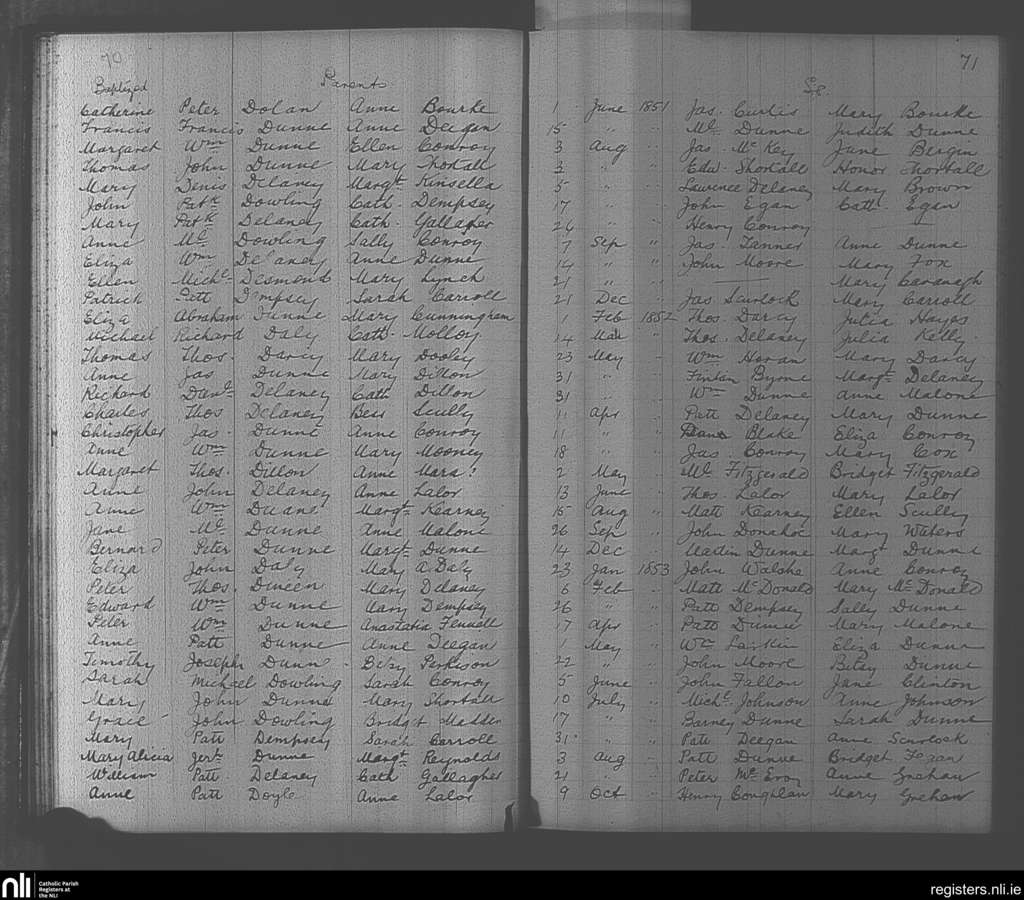 70 71
Baptized Parents Sp.
Catherine Peter Dolan Anne Bourke 1 June 1851 Jas. Curtis Mary Bourke
Francis Francis Dunne Anne Deegan 15 " " Ml. Dunne Judith Dunne
Margaret Wm Dunne Ellen Conroy 3 Aug " Jas. McKey Jane Bergin
Thomas John Dunne Mary Shortall 3 " " Edw. Shortall Honor Shortall
Mary Denis Delaney Margt. Kinsella 5 " " Laurence Delaney Mary Brown
John Patk Dowling Cath. Dempsey 17 " " John Egan Cath. Egan
Mary Patk Delaney Cath. Gallagher 24 " " Henry Conroy
Anne Ml. Dowling Sally Conroy 7 Sep " Jas. Tanner Anne Dunne
Eliza Wm Delaney Anne Dunne 14 " " John Moore Mary Fox
Ellen Michl. Desmond Mary Lynch 21 " " Mary Cavanagh
Patrick Patt Dempsey Sarah Carroll 21 Dec " Jas Scurlock Mary Carroll
Eliza Abraham Dunne Mary Cunningham 1 Feb 1852 Thos. Darcy Julia Hayes
Michael Richard Daly Cath. Molloy 14 Mar " Thos. Delaney Julia Kelly
Thomas Thos. Darcy Mary Dooley 23 May " Wm Horan Mary Darcy
Anne Jas Dunne Mary Dillon 31 " " Fintan Byrne Margt. Delaney
Richard Danl. Delaney Cath Dillon 31 " " Wm Dunne Anne Malone
Charles Thos Delaney Bess Scully 11 Apr " Patt Delaney Mary Dunne
Christopher Jas. Dunne Anne Conroy 11 " " Blake Eliza Conroy
Anne Wm Dunne Mary Mooney 18 " " Jas. Conroy Mary Cox
Margaret Thos. Dillon Anne Mara? 2 May " Ml. Fitzgerald Bridget Fitzgerald
Anne John Delaney Anne Lalor 13 June " Thos. Lalor Mary Lalor
Anne Wm Duane Margt. Kearney 15 Aug " Matt Kearney Ellen Scully
Jane Ml. Dunne Anne Malone 26 Sep " John Donahoe Mary Waters
Bernard Peter Dunne Margt. Dunne 14 Dec " Martin Dunne Margt Dunne
Eliza John Daly Mary A. Daly 23 Jan 1853 John Walshe Anne Conroy
Peter Thos. Dineen Mary Delaney 6 Feb " Matt McDonald Mary McDonald
Edward Wm Dunne Mary Dempsey 26 " " Patt Dempsey Sally Dunne
Peter Wm Dunne Anastatia Fennell 17 Apr " Patt Dunne Mary Malone
Anne Patt Dunne Anne Deegan 1 May " Wm Larkin Eliza Dunne
Timothy Joseph Dunn Betsy Parkison 22 " " John Moore Betsy Dunne
Sarah Michael Dowling Sarah Conroy 5 June " John Fallon Jane Clinton
Mary John Dunne Mary Shortall 10 July " Michl. Johnson Anne Johnson
Grace John Dowling Bridget Madden 17 " " Barney Dunne Sarah Dunne
Mary Patt Dempsey Sarah Carroll 31 " " Patt Deegan Anne Scurlock
Mary Alicia Jerh. Dunne Margt. Reynolds 3 Aug " Patt Dunne Bridget
William Patt. Delaney Cath Gallagher 21 " " Peter McEvoy Anne Graham
Anne Patt Doyle Anne Lalor 9 Oct " Henry Coughlan Mary Graham
nli Catholic Parish
Registers at
the NLI
registers.nli.ie